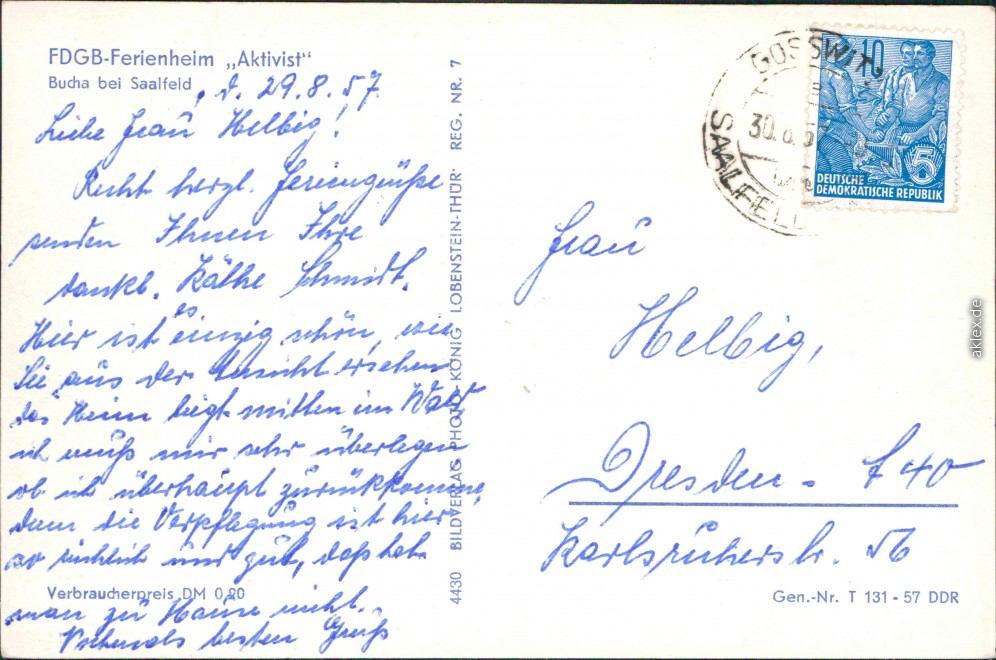 FDGB-Ferienheim „Aktivist"
Bucha bei Saalfeld
, d. 29.8.57.
Liebe Frau Helbig!
Recht herzl. Feriengrüße
senden Ihnen Ihre
dankb. Käthe Schmidt.
Hier ist es einzig schön, wie
Sie aus der Ansicht ersehen
das Heim liegt mitten im Wald,
ich muß mir sehr überlegen
ob ich überhaupt zurückkomme,
denn die Verpflegung ist hier
so reichlich und gut, daß hat
man zu Hause nicht.
Nochmals besten Gruß
Verbraucherpreis DM 0,20
4430 BILDVERLAG PHOTO-KÖNIG LOBENSTEIN-THÜR. REG. NR. 7
GOSSWITZ
30.8.57
SAALFELD
10
5
DEUTSCHE
DEMOKRATISCHE REPUBLIK
Frau
Helbig,
Dresden - A 40
Karlsruherstr. 56
Gen.-Nr. T 131 - 57 DDR
aklex.de